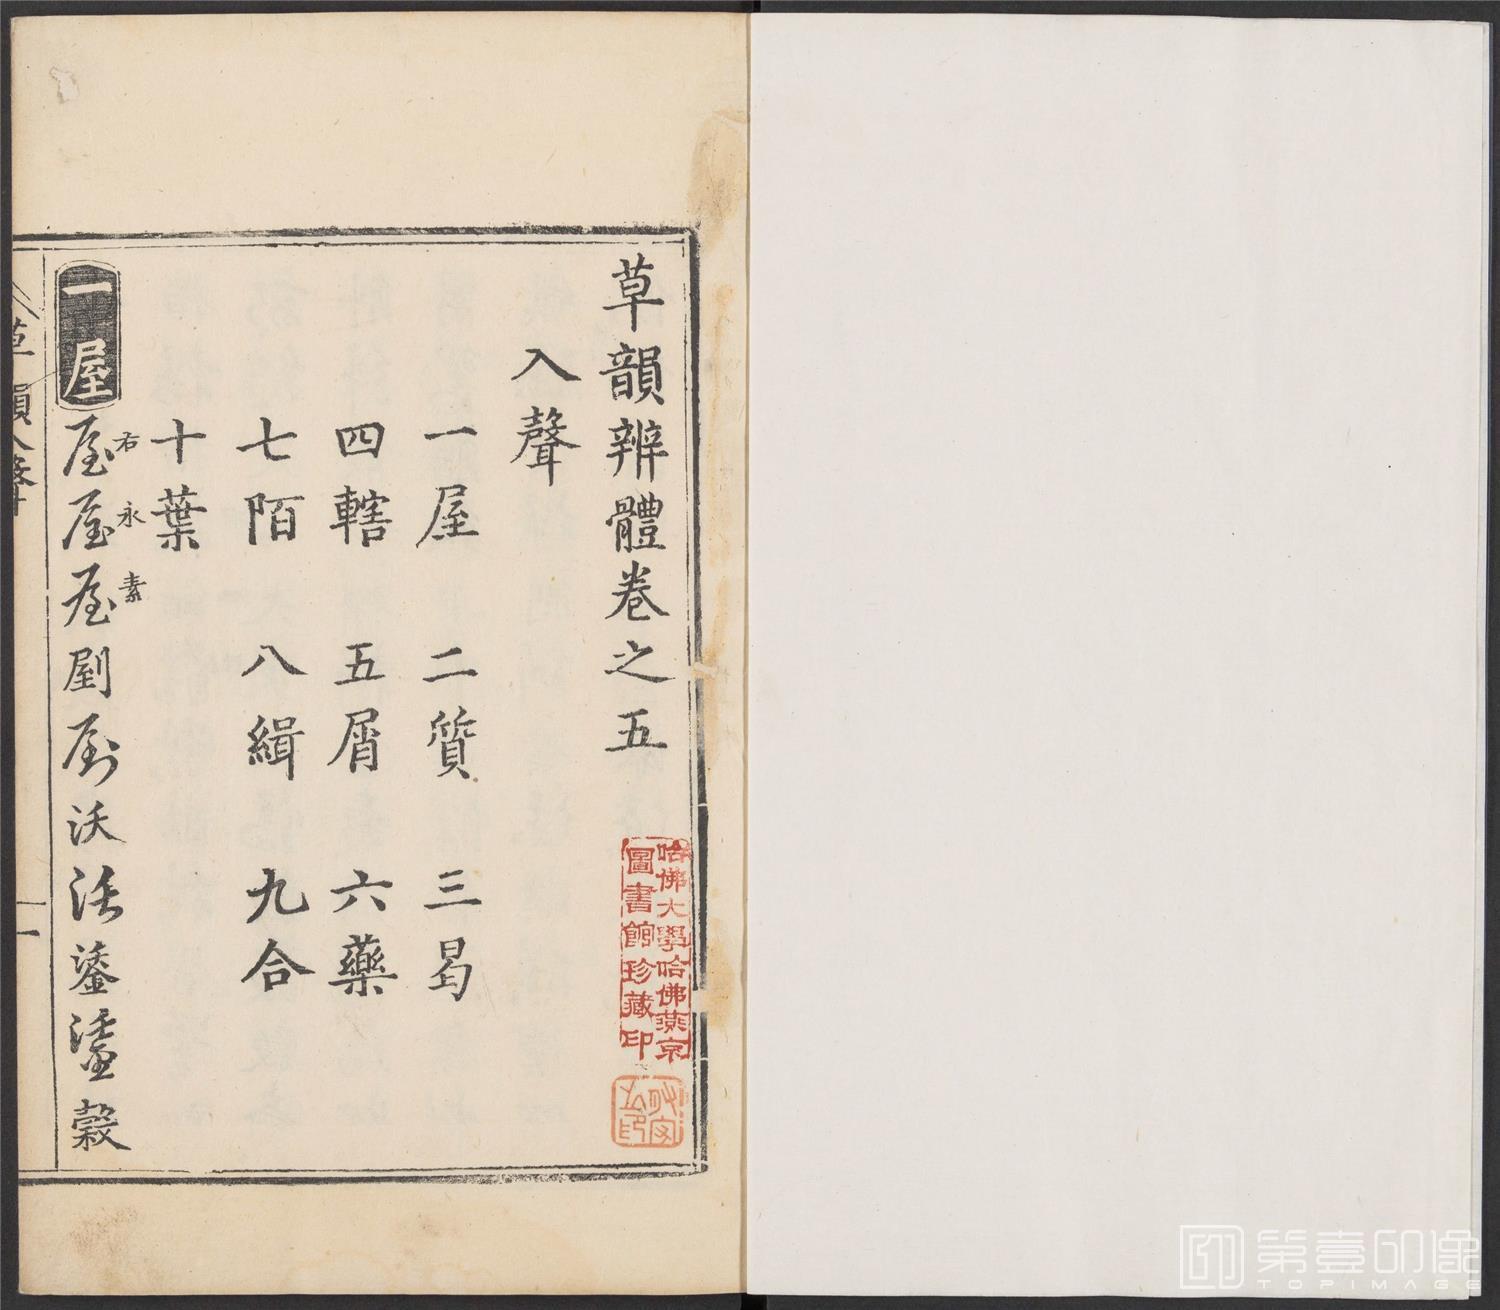 草韻辨體卷之五
入聲
一屋 二質 三曷
四轄 五屑 六藥
七陌 八緝 九合
十葉
一屋 屋右 屋永 屋素 剭 剭 沃 沃 鋈 鋈 穀
哈佛大學哈佛燕京
圖書館珍藏印
第壹印像
TOPIMAGE